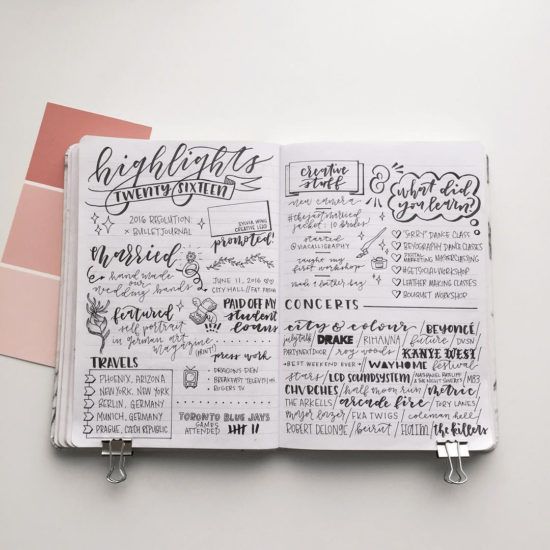 highlights
TWENTY SIXTEEN
2016 RESOLUTION:
× BULLET JOURNAL
SYLVIA WONG
CREATIVE LEAD
promoted!
married
& hand made
our
wedding bands
JUNE 11, 2016
CITY HALL // EAT PASTA
featured
self portrait
in german art
magazine
(PRINT)
PAID OFF MY
student
loans
TRAVELS
PHOENIX, ARIZONA
NEW YORK, NEW YORK
BERLIN, GERMANY
MUNICH, GERMANY
PRAGUE, CZECH REPUBLIC
press work
DRAGONS DEN
BREAKFAST TELEVISION
ROGERS TV
TORONTO BLUE JAYS
GAMES
ATTENDED
creative
stuff
&
what did
you learn?
new camera
#thejustmarried
jacket : 10 brides
started
@VIACALLIGRAPHY
taught my
first workshop
made a leather bag
"SORRY" DANCE CLASS
BEYOGRAPHY DANCE CLASSES
DIGITAL
MARKETING MASTERCLASSING
#GETSOCIAL WORKSHOP
LEATHER MAKING CLASSES
BOUQUET WORKSHOP
CONCERTS
city & colour / BEYONCÉ /
DRAKE / RIHANNA / future / DVSN
PARTYNEXTDOOR / roy woods / KANYE WEST /
• BEST WEEKEND EVER • WAYHOME festival
stars / LCD SOUNDSYSTEM / NATHANIEL RATELIFF & THE NIGHT SWEATS / M83
CHVRCHES / half moon run / metric /
THE ARKELLS / arcade fire / TORY LANES /
major lazer / FKA TWIGS / coleman hell /
ROBERT DELONGE / beirut / HAIM / the killers